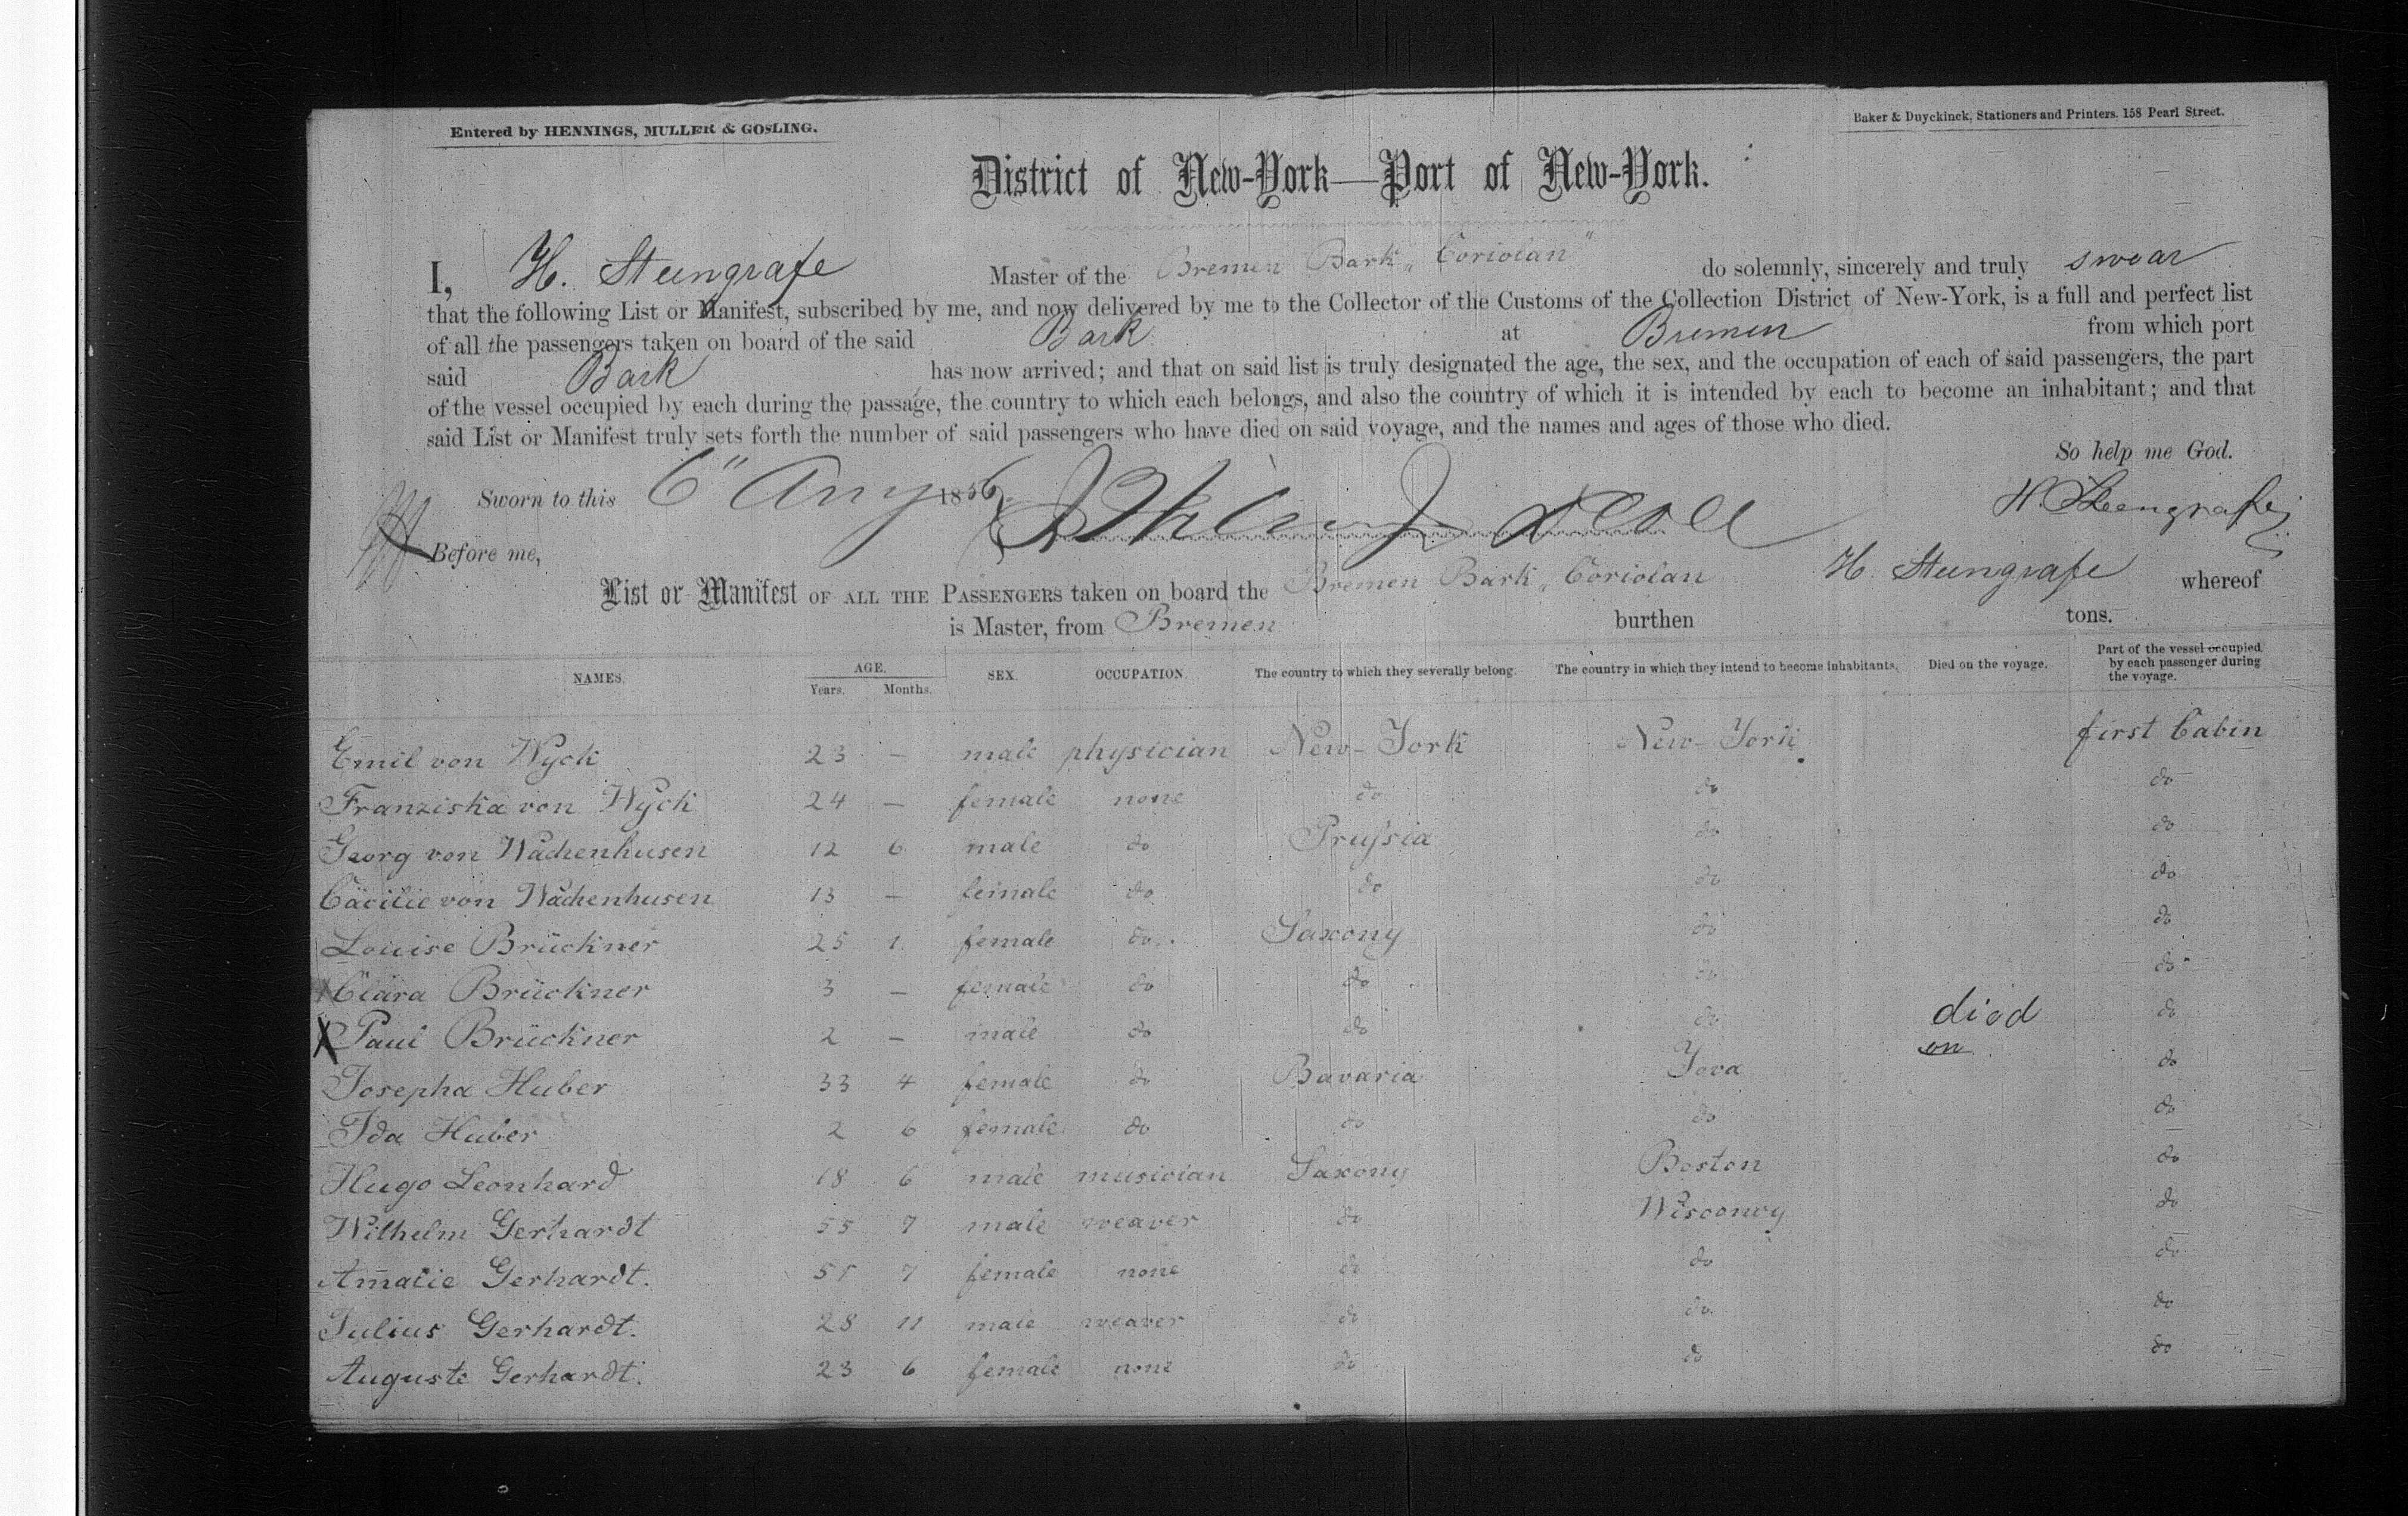 Entered by HENNINGS, MULLER & GOSLING.
Baker & Duyckinck, Stationers and Printers. 158 Pearl Street.
District of New-York—Port of New-York.
I, H. Steengrafe Master of the Bremen Bark „Coriolan" do solemnly, sincerely and truly swear
that the following List or Manifest, subscribed by me, and now delivered by me to the Collector of the Customs of the Collection District of New-York, is a full and perfect list
of all the passengers taken on board of the said Bark at Bremen from which port
said Bark has now arrived; and that on said list is truly designated the age, the sex, and the occupation of each of said passengers, the part
of the vessel occupied by each during the passage, the country to which each belongs, and also the country of which it is intended by each to become an inhabitant; and that
said List or Manifest truly sets forth the number of said passengers who have died on said voyage, and the names and ages of those who died.
So help me God.
Sworn to this 6" Aug 1856 H. Steengrafe
Before me,
List or Manifest OF ALL THE PASSENGERS taken on board the Bremen Bark „Coriolan H. Steengrafe whereof
is Master, from Bremen burthen tons.
NAMES. AGE. Years. Months. SEX. OCCUPATION. The country to which they severally belong. The country in which they intend to become inhabitants. Died on the voyage. Part of the vessel occupied by each passenger during the voyage.
Emil von Wyck 23 — male physician New-York New-York first Cabin
Franziska von Wyck 24 — female none do do do
Georg von Wachenhusen 12 6 male do Prussia do do
Cäcilie von Wachenhusen 13 — female do do do do
Louise Brückner 25 1 female do Saxony do do
Clara Brückner 3 — female do do do do
X Paul Brückner 2 — male do do do died do
Josepha Huber 33 4 female do Bavaria Jova on do
Ida Huber 2 6 female do do do do
Hugo Leonhard 18 6 male musician Saxony Boston do
Wilhelm Gerhardt 55 7 male weaver do do
Amalie Gerhardt. 51 7 female none do do do
Julius Gerhardt. 28 11 male weaver do do do
Auguste Gerhardt. 23 6 female none do do do